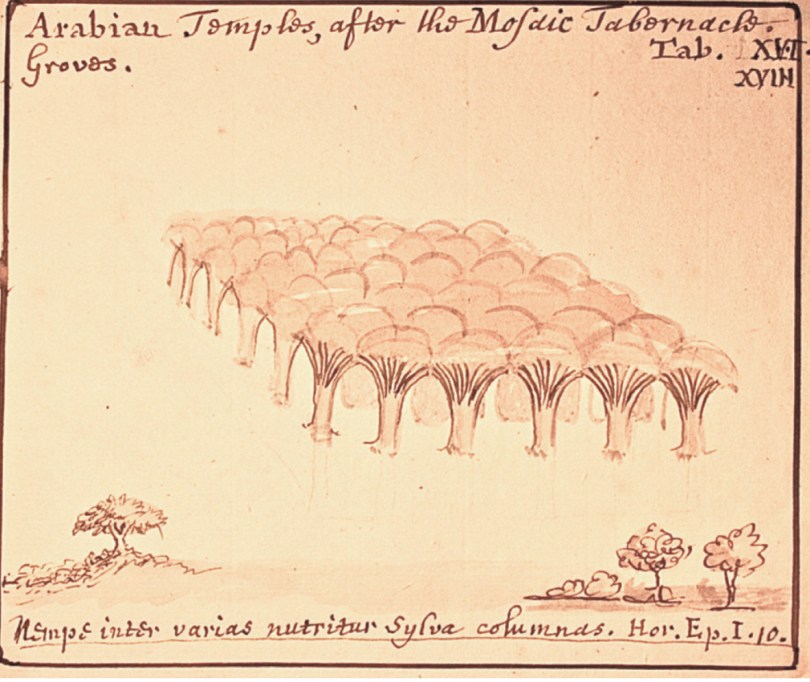 Arabian Temples, after the Mosaic Tabernacle.
Tab. XVI.
Groves.
XVIII
Nempe inter varias nutritur Sylva columnas. Hor. Ep. I. 10.